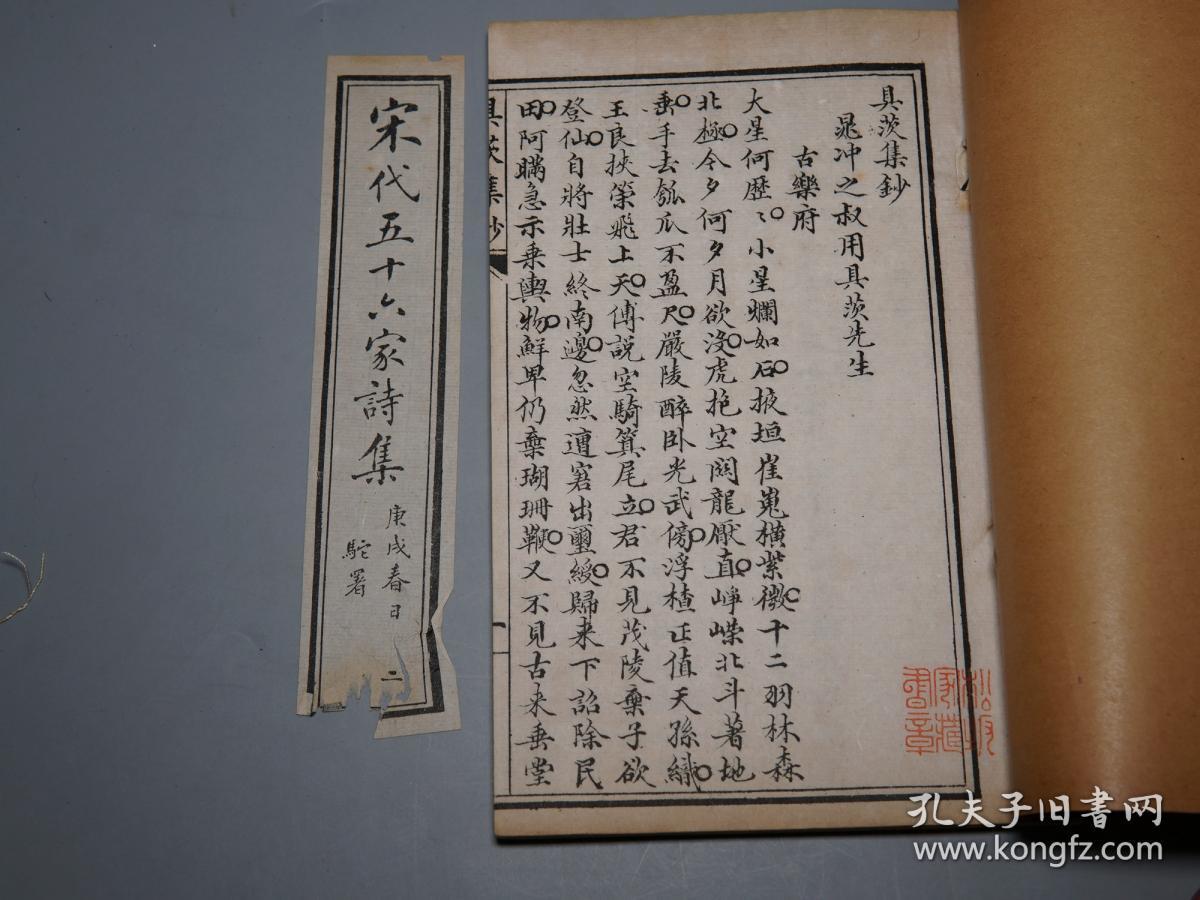 具茨集鈔
晁冲之叔用具茨先生
古樂府
大星何歷〻小星爛如石掖垣崔嵬橫紫微十二羽林森
北極今夕何夕月欲沒虎抱空關龍厭直崢嶸北斗著地
垂手去瓠瓜不盈尺嚴陵醉臥光武傍浮楂正值天孫織
王良挾策飛上天傅說空騎箕尾立君不見茂陵棄子欲
登仙自將壯士終南邊忽然遭窘出璽綬歸来下詔除民
田阿瞞急示乗輿物鮮卑仍棄瑚珊鞭又不見古来垂堂
具茨集鈔
一
宋代五十六家詩集
庚戌春日
駝署
二
書章
家藏
孔夫子旧书网
www.kongfz.com